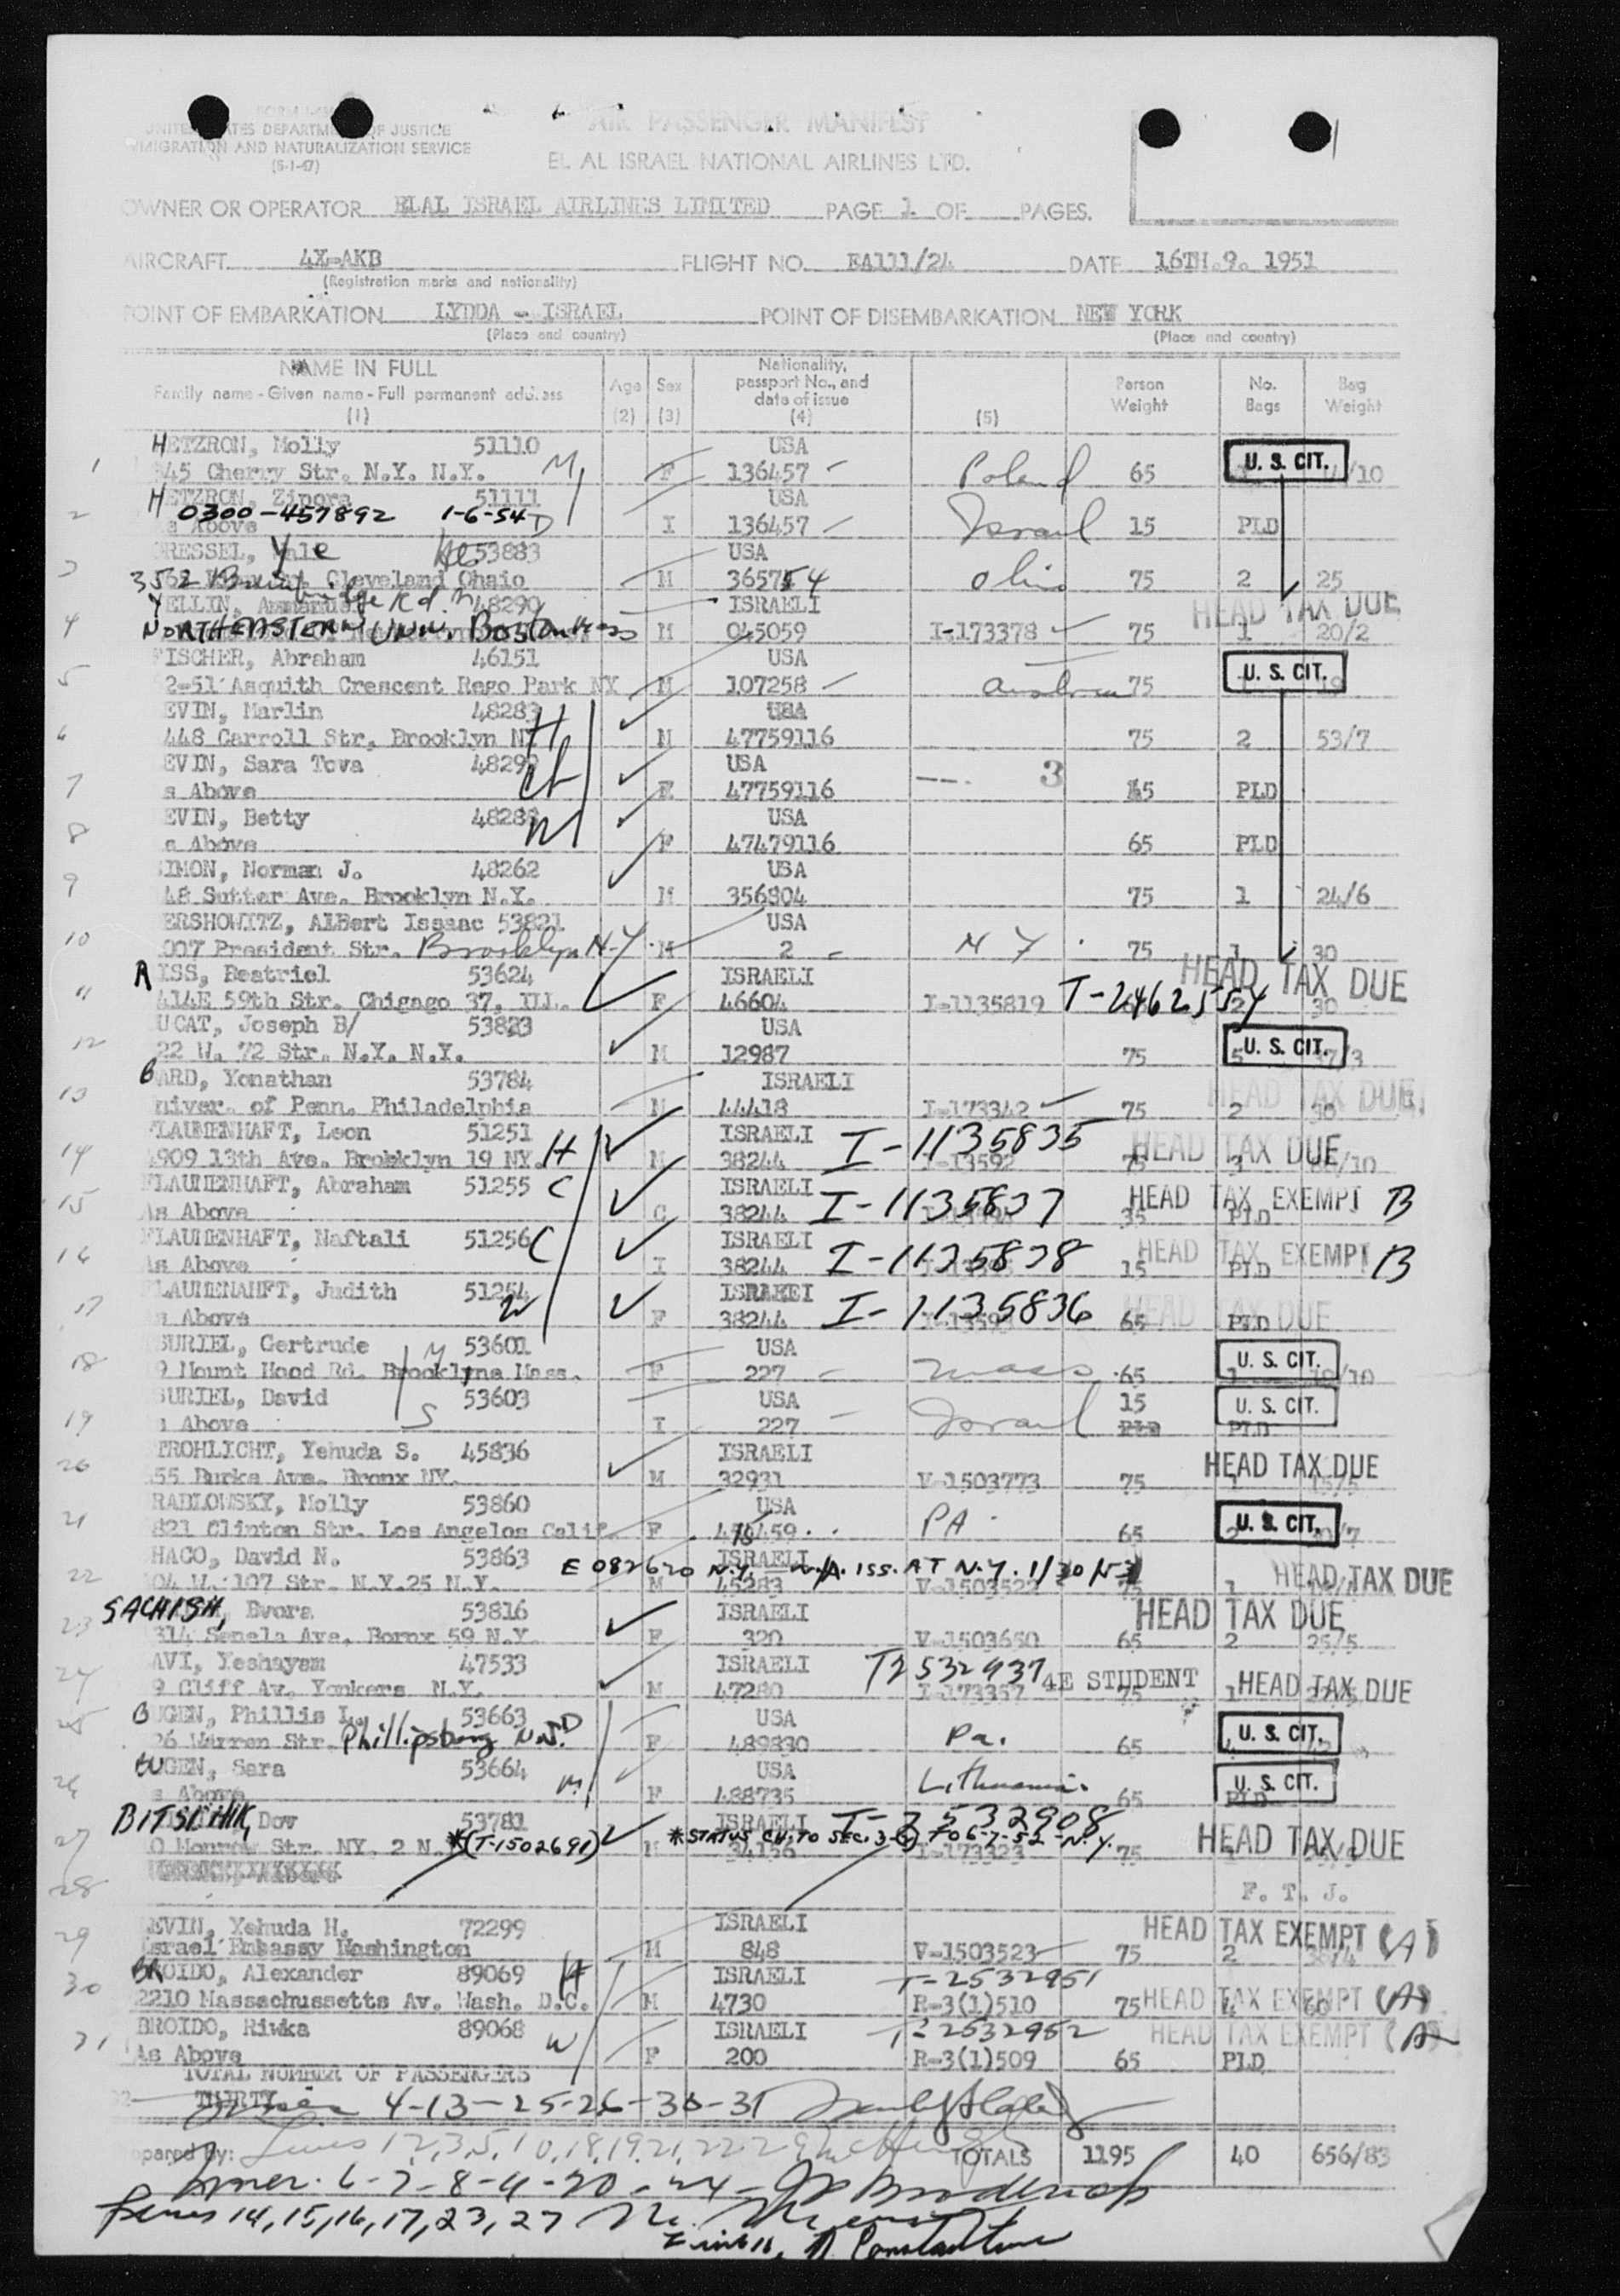 UNITED STATES DEPARTMENT OF JUSTICE
IMMIGRATION AND NATURALIZATION SERVICE
(5-1-47)
AIR PASSENGER MANIFEST
EL AL ISRAEL NATIONAL AIRLINES LTD.
OWNER OR OPERATOR ELAL ISRAEL AIRLINES LIMITED PAGE 1 OF PAGES.
AIRCRAFT 4X-AKB FLIGHT NO. EA111/24 DATE 16TH.9. 1951
(Registration marks and nationality)
POINT OF EMBARKATION LYDDA - ISRAEL POINT OF DISEMBARKATION NEW YORK
(Place and country) (Place and country)
NAME IN FULL Age Sex Nationality, passport No., and date of issue Person Weight No. Bags Bag Weight
Family name - Given name - Full permanent address
(1) (2) (3) (4) (5)
HETZRON, Molly 51110 USA U. S. CIT.
1 45 Cherry Str. N.Y. N.Y. M F 136457 Poland 65 /10
HETZRON, Zipora 51111 USA
2 0300-457892 1-6-54 D
As Above I 136457 Israel 15 PLD
RESSEL, Yale 53883 USA
3 352 Cleveland Ohaio M 36575 54 Ohio 75 2 25
Rd.
YELLIN, 48290 ISRAELI HEAD TAX DUE
4 NORTHEASTERN UNIV. Boston M 045059 I-173378 75 1 20/2
FISCHER, Abraham 46151 USA U. S. CIT.
5 2-51 Asquith Crescent Rego Park NY M 107258 Austria 75 19
EVIN, Marlin 48283 H USA
6 448 Carroll Str, Brooklyn NY M 47759116 75 2 53/7
EVIN, Sara Tova 48299 Ch USA
7 s Above F 47759116 3 15 PLD
EVIN, Betty 48288 W USA
8 s Above F 47479116 65 PLD
IMON, Norman J. 48262 USA
9 48 Sutter Ave. Brooklyn N.Y. M 356804 75 1 24/6
ERSHOWITZ, ALBert Issaac 53821 USA
10 007 President Str. Brooklyn N.Y M 2 N Y 75 1 30
AISS, Beatriel 53624 ISRAELI HEAD TAX DUE
11 414E 59th Str. Chigago 37, ILL. F 46604 I-1135819 T-2462554 2 30
UCAT, Joseph B/ 53823 USA U. S. CIT.
12 22 W. 72 Str. N.Y. N.Y. M 12987 75 5 /3
BARD, Yonathan 53784 ISRAELI HEAD TAX DUE
13 niver. of Penn. Philadelphia M 44418 I-173342 75 2 30
FLAUMENHAFT, Leon 51251 ISRAELI I-1135835 HEAD TAX DUE
14 4909 13th Ave. Brokklyn 19 NY. H M 38244 I-13592 75 3 /10
FLAUMENHAFT, Abraham 51255 C ISRAELI I-1135837 HEAD TAX EXEMPT B
15 As Above C 38244 35 PLD
FLAUMENHAFT, Naftali 51256 C ISRAELI I-1135838 HEAD TAX EXEMPT B
16 As Above I 38244 15 PLD
FLAUMENAHFT, Judith 51254 W ISRAELI I-1135836 HEAD TAX DUE
17 s Above F 38244 65 PLD
SURIEL, Gertrude 53601 M USA U. S. CIT.
18 9 Mount Hood Rd. Brooklyna Mass. F 227 Mass 65 1 /10
SURIEL, David 53603 USA 15 U. S. CIT.
19 s Above S I 227 Israel PLD PLD
FROHLICHT, Yehuda S. 45836 ISRAELI HEAD TAX DUE
20 55 Burke Ave. Bronx NY. M 32931 V-1503773 75 1 15/5
RABLOWSKY, Molly 53860 USA U. S. CIT.
21 821 Clinton Str. Los Angelos Calif. F PA 65 /7
HACO, David N. 53863 E 082620 N.Y. ISS. AT N.Y. ISRAELI HEAD TAX DUE
22 04 W. 107 Str. N.Y.25 N.Y. M 45283 V-1503522 75 1
SACHISH, Evora 53816 ISRAELI HEAD TAX DUE
23 314 Senela Ave. Bornx 59 N.Y. F 320 V-1503650 65 2 25/5
AVI, Yeshayam 47533 ISRAELI T2532937 4E STUDENT HEAD TAX DUE
24 9 Cliff Av. Yonkers N.Y. M 47280 I-173357 75 1
BUGEN, Phillis L. 53663 D USA U. S. CIT.
25 26 Warren Str. Phillipsburg N.J. F 489830 Pa. 65
BUGEN, Sara 53664 USA U. S. CIT.
26 s Above M F 488735 Lithuania 65 PLD
BITSCHIK, Dov 53781 ISRAELI T-2532908 HEAD TAX DUE
27 0 Monroe Str. NY. 2 N.Y. *(T-1502691) M *STATUS CH. TO SEC. 3-( ) F06-7-52-N.Y. 34156 I-173323 75
28 F. T. J.
EVIN, Yehuda H. 72299 ISRAELI HEAD TAX EXEMPT (A)
29 Israel Embassy Washington M 848 V-1503523 75 2
BROIDO, Alexander 89069 H ISRAELI T-2532951
30 2210 Massachussetts Av. Wash. D.C. M 4730 R-3(1)510 75 HEAD TAX EXEMPT (A) 4 60
BROIDO, Riwka 89068 W ISRAELI T-2532952 HEAD TAX EXEMPT (A)
31 As Above F 200 R-3(1)509 65 PLD
TOTAL NUMBER OF PASSENGERS
THIRTY 4-13-25-26-30-31
Prepared by: Lines 1,2,3,5,10,18,19,21,22,29 TOTALS 1195 40 656/83
6-7-8-9-11-20-24- Broderick
Lines 14,15,16,17,23,27
Constantine